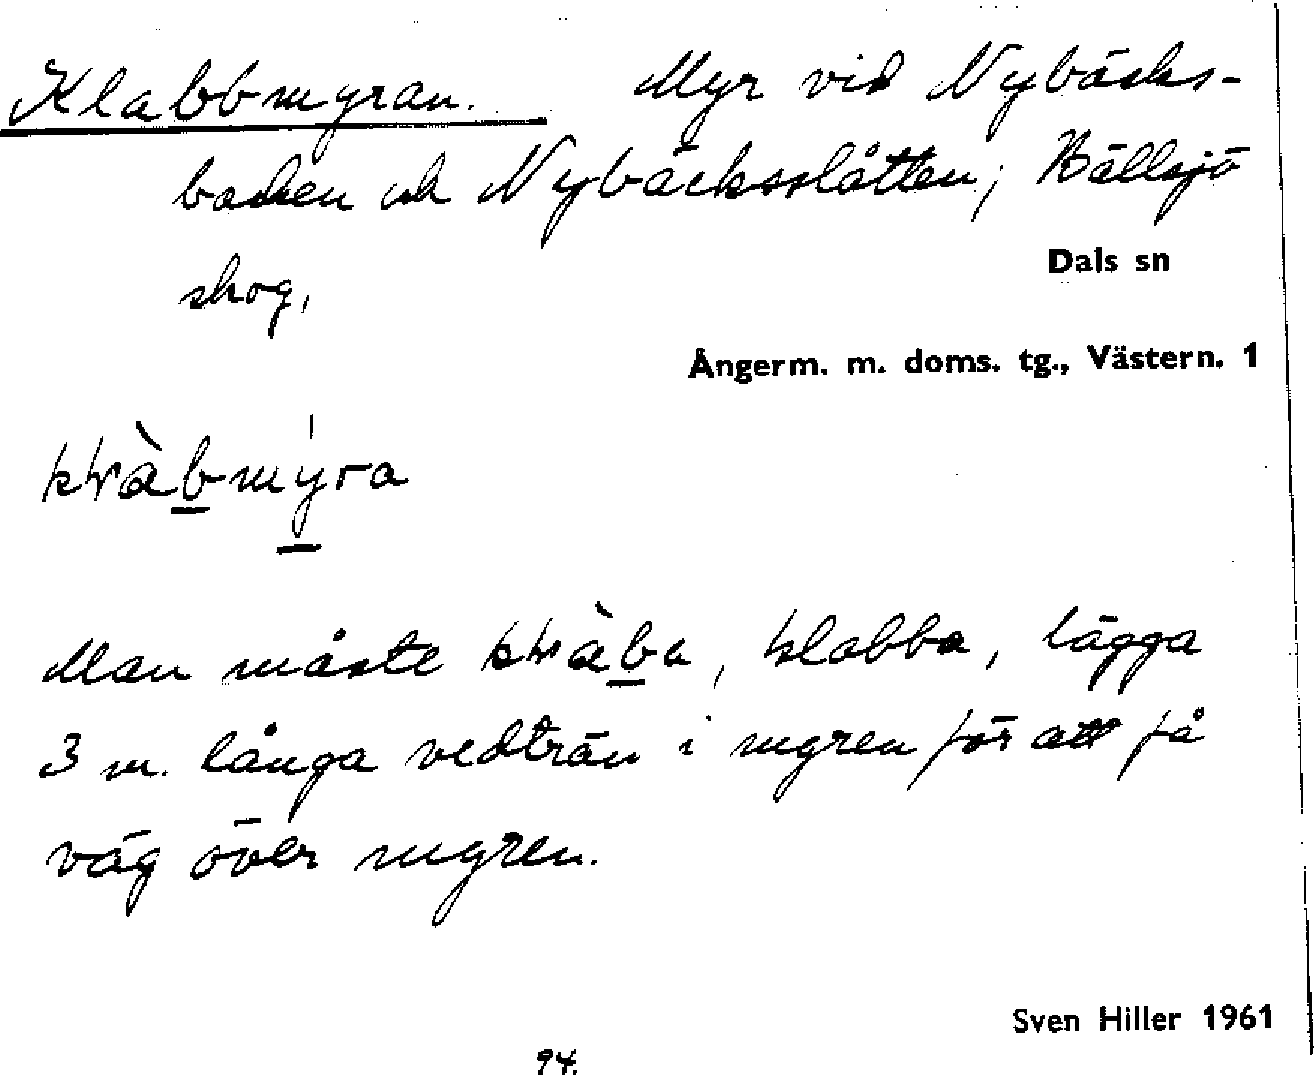 Klabbmyran. Myr vid Nybäcks-
backen och Nybäcksslåtten; Bällsjö
skog,
Dals sn
Ångerm. m. doms. tg., Västern. 1
Man måste klabba, lägga
3 m. långa vedträn i myren för att få
väg över myren.
Sven Hiller 1961
94.